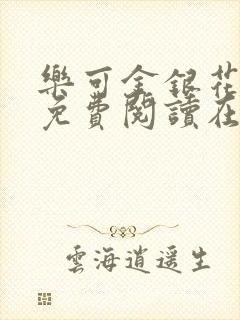 樂可金銀花
免費閱讀在
雲海逍遥生